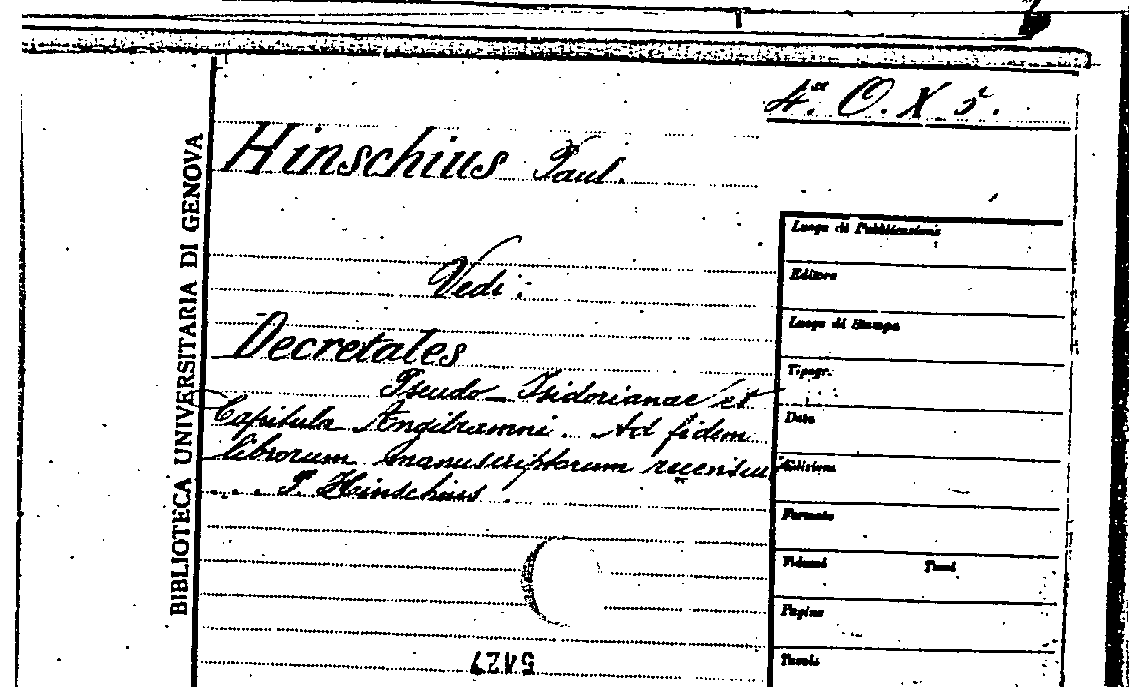 4.ª O. X. 5.
BIBLIOTECA UNIVERSITARIA DI GENOVA
Hinschius Paul.
Vedi:
Decretales
Pseudo-Isidorianae et
Capitula Angilramni. Ad fidem
librorum manuscriptorum recensuit
... P. Hinschius.
Luogo di Pubblicazione
Editore
Luogo di Stampa
Tipogr.
Data
Edizione
Formato
Volumi Tomi
Pagine
Tavole